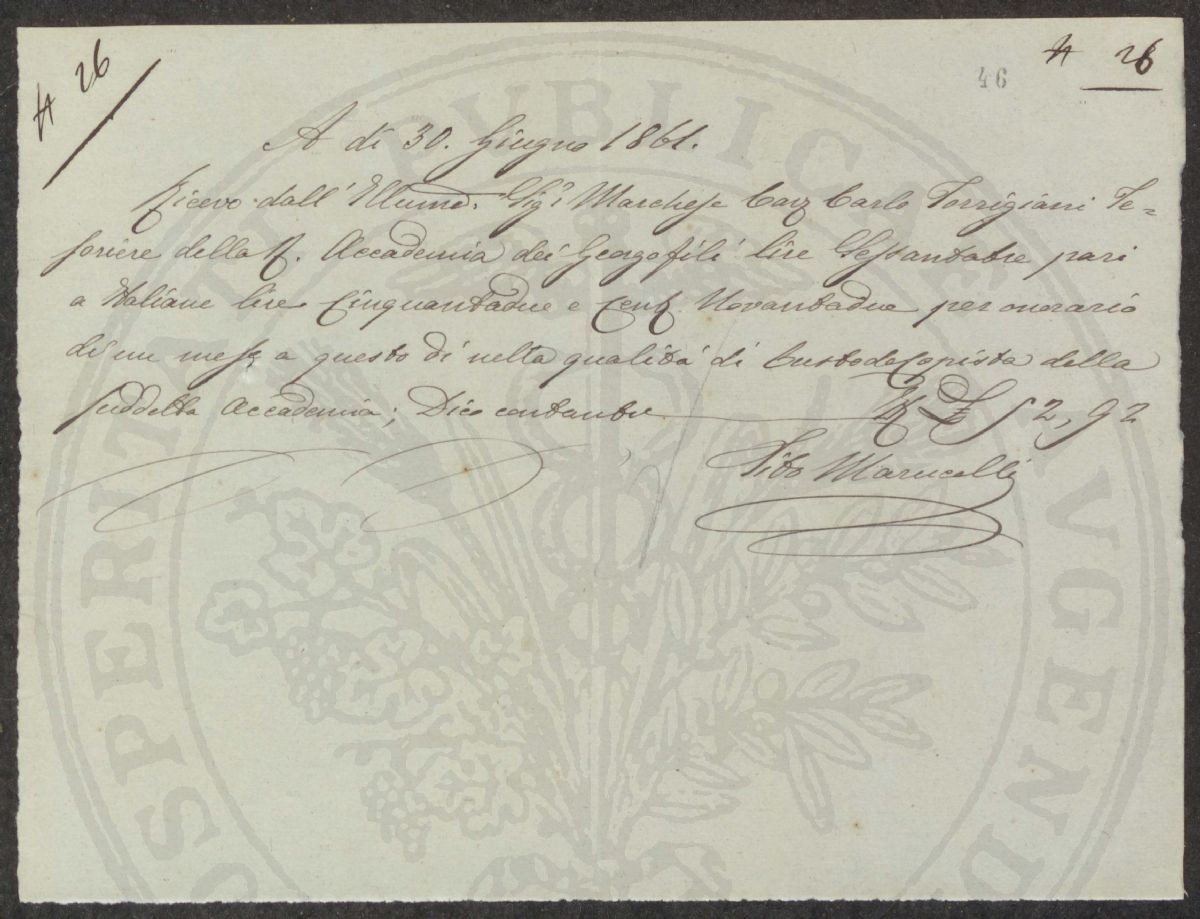 N 26
46
N 26
A di 30. Giugno 1861.
Ricevo dall'Illumo. Sigr Marchese Cav Carlo Torrigiani Te=
soriere della R. Accademia dei Georgofili lire Sessantatre pari
a Italiane lire Cinquantadue e Cent. Novantadue per onorario
di un mese a questo di nella qualità di Custode Copista della
suddetta Accademia; Dico contante £ 52,92
Tito Marucelli
PROSPERITATI PUBLICAE AUGENDAE